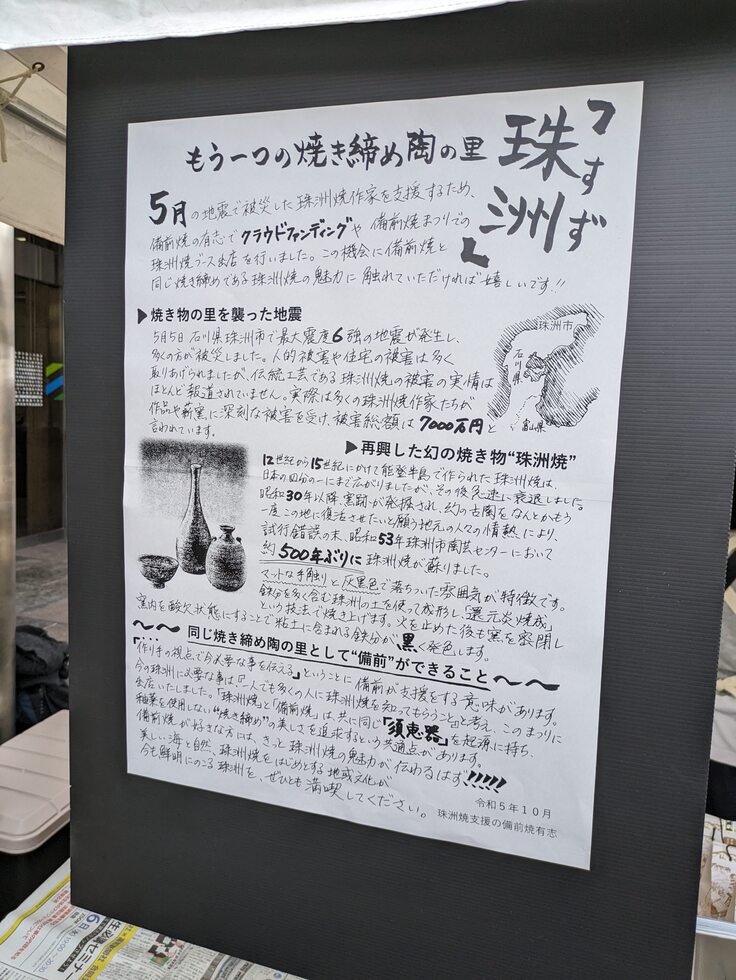 もう一つの焼き締め陶の里「珠洲」
すず
5月の地震で被災した珠洲焼作家を支援するため、
備前焼の有志でクラウドファンディングや備前焼まつりでの
珠洲焼ブース出店を行いました。この機会に備前焼と
同じ焼き締めである珠洲焼の魅力に触れていただければ嬉しいです!!
▶焼き物の里を襲った地震
5月5日石川県珠洲市で最大震度6強の地震が発生し、
多くの方が被災しました。人的被害や住宅の被害は多く
取りあげられましたが、伝統工芸である珠洲焼の被害の実情は
ほとんど報道されていません。実際は多くの珠洲焼作家たちが
作品や薪窯に深刻な被害を受け、被害総額は7000万円と
言われています。
珠洲市
石川県
富山県
▶再興した幻の焼き物“珠洲焼”
12世紀から15世紀にかけて能登半島で作られた珠洲焼は、
日本の四分の一にまで広がりましたが、その後急速に衰退しました。
昭和30年以降窯跡が発掘され、幻の古陶をなんとかもう
一度この地に復活させたいと願う地元の人々の情熱により、
試行錯誤の末、昭和53年珠洲市陶芸センターにおいて
約500年ぶりに珠洲焼が蘇りました。
マットな手触りと灰黒色で落ちついた雰囲気が特徴です。
鉄分を多く含む珠洲の土を使って成形し「還元炎焼成」
という技法で焼き上げます。火を止めた後も窯を密閉し
窯内を酸欠状態にすることで粘土に含まれる鉄分が黒く発色します。
〜〜同じ焼き締め陶の里として“備前”ができること〜〜
「作り手の視点で今必要な事を伝える」ということに備前が支援をする意味があります。
今の珠洲に必要な事は「一人でも多くの人に珠洲焼を知ってもらうこと」と考え、このまつりに
出店いたしました。「珠洲焼」と「備前焼」は、共に同じ「須恵器」を起源に持ち、
釉薬を使用しない“焼き締め”の美しさを追求するという共通点があります。
備前焼が好きな方には、きっと珠洲焼の魅力が伝わるはず!!!!!
美しい海と自然、珠洲焼をはじめとする地域文化が
今も鮮明にのこる珠洲を、ぜひとも満喫してください。
令和5年10月
珠洲焼支援の備前焼有志